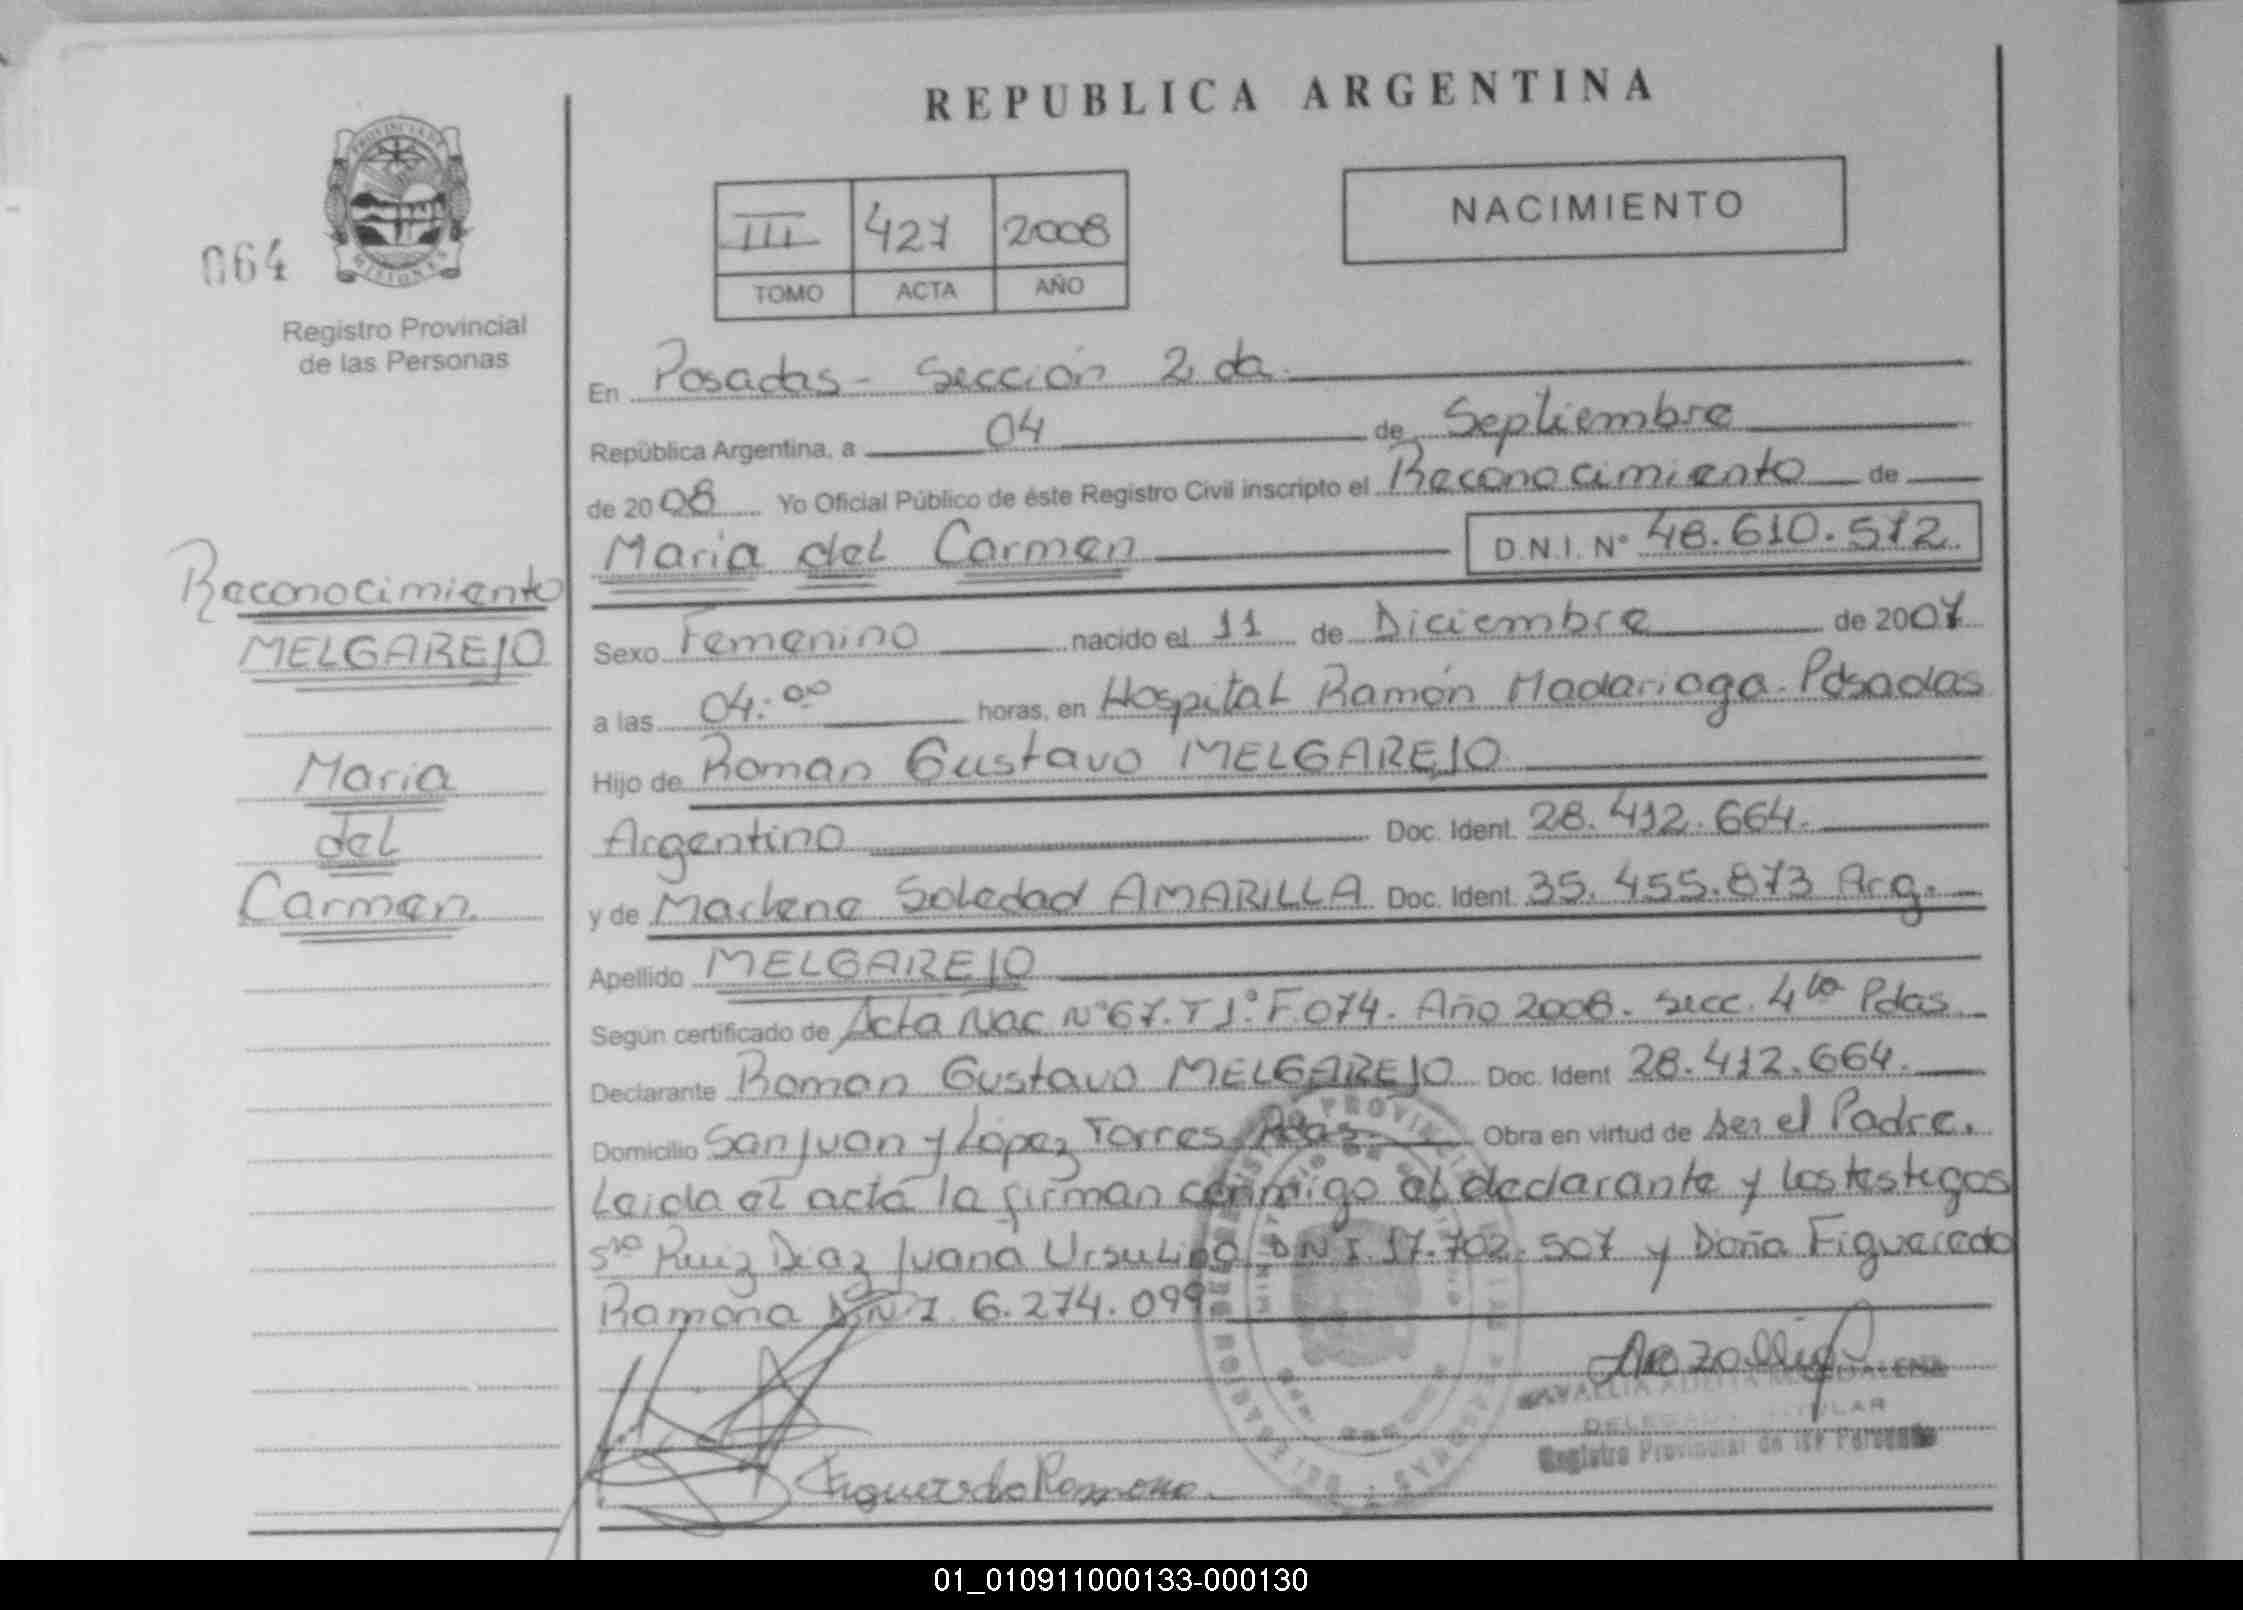 REPUBLICA ARGENTINA
NACIMIENTO
III 427 2008
TOMO ACTA AÑO
064
Registro Provincial
de las Personas
En Posadas - Sección 2da.
República Argentina, a 04 de Septiembre
de 2008 Yo Oficial Público de éste Registro Civil inscripto el Reconocimiento de
Maria del Carmen D.N.I. Nº 48.610.572
Reconocimiento
MELGAREJO
Maria
del
Carmen
Sexo Femenino nacido el 11 de Diciembre de 2007
a las 04:00 horas, en Hospital Ramón Madariaga - Posadas
Hijo de Roman Gustavo MELGAREJO
Argentino Doc. Ident. 28.412.664.
y de Marlene Soledad AMARILLA Doc. Ident. 35.455.873 Arg.
Apellido MELGAREJO
Según certificado de Acta Nac Nº67. T 1º. F. 074. Año 2008. Secc. 4ta Pdas.
Declarante Roman Gustavo MELGAREJO Doc. Ident 28.412.664.
Domicilio San Juan y López Torres Pdas. Obra en virtud de ser el Padre.
Leida el acta la firman conmigo el declarante y los testigos
Sra Ruiz Diaz Juana Ursulina D.N.I. 17.702.507 y Doña Figueredo
Ramona D.N.I. 6.274.099.
Figueredo Ramona
DELEGADA TITULAR
Registro Provincial de las Personas
01_010911000133-000130